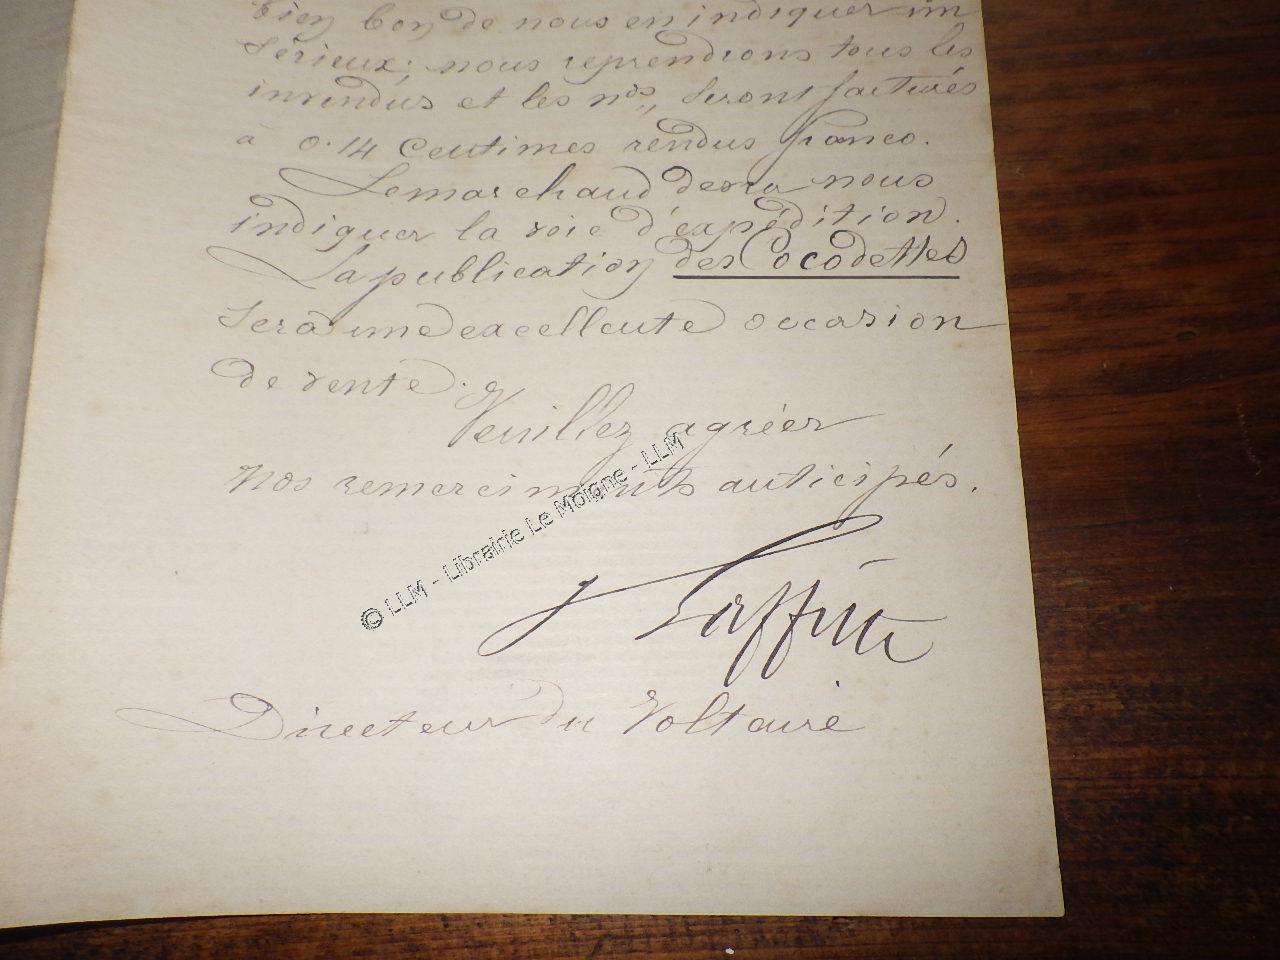 bien bon de nous en indiquer un
sérieux; nous reprendrons tous les
invendus et les nos,, seront facturés
à 0.14 Centimes rendus franco.
Le marchand devra nous
indiquer la voie d'expédition.
La publication des Cocodettes
sera une excellente occasion
de vente.
Veuillez agréer
nos remerciments anticipés.
J Laffitte
Directeur du Voltaire
© LLM - Librairie Le Moigne - LLM